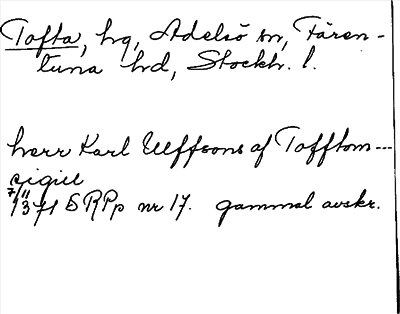 Tofta, hg, Adelsö sn, Fären-
tuna hd, Stockh. l.
herr Karl Ulffsons af Tofftom---
sigill
7/11 1371 SRPp nr 17. gammal avskr.